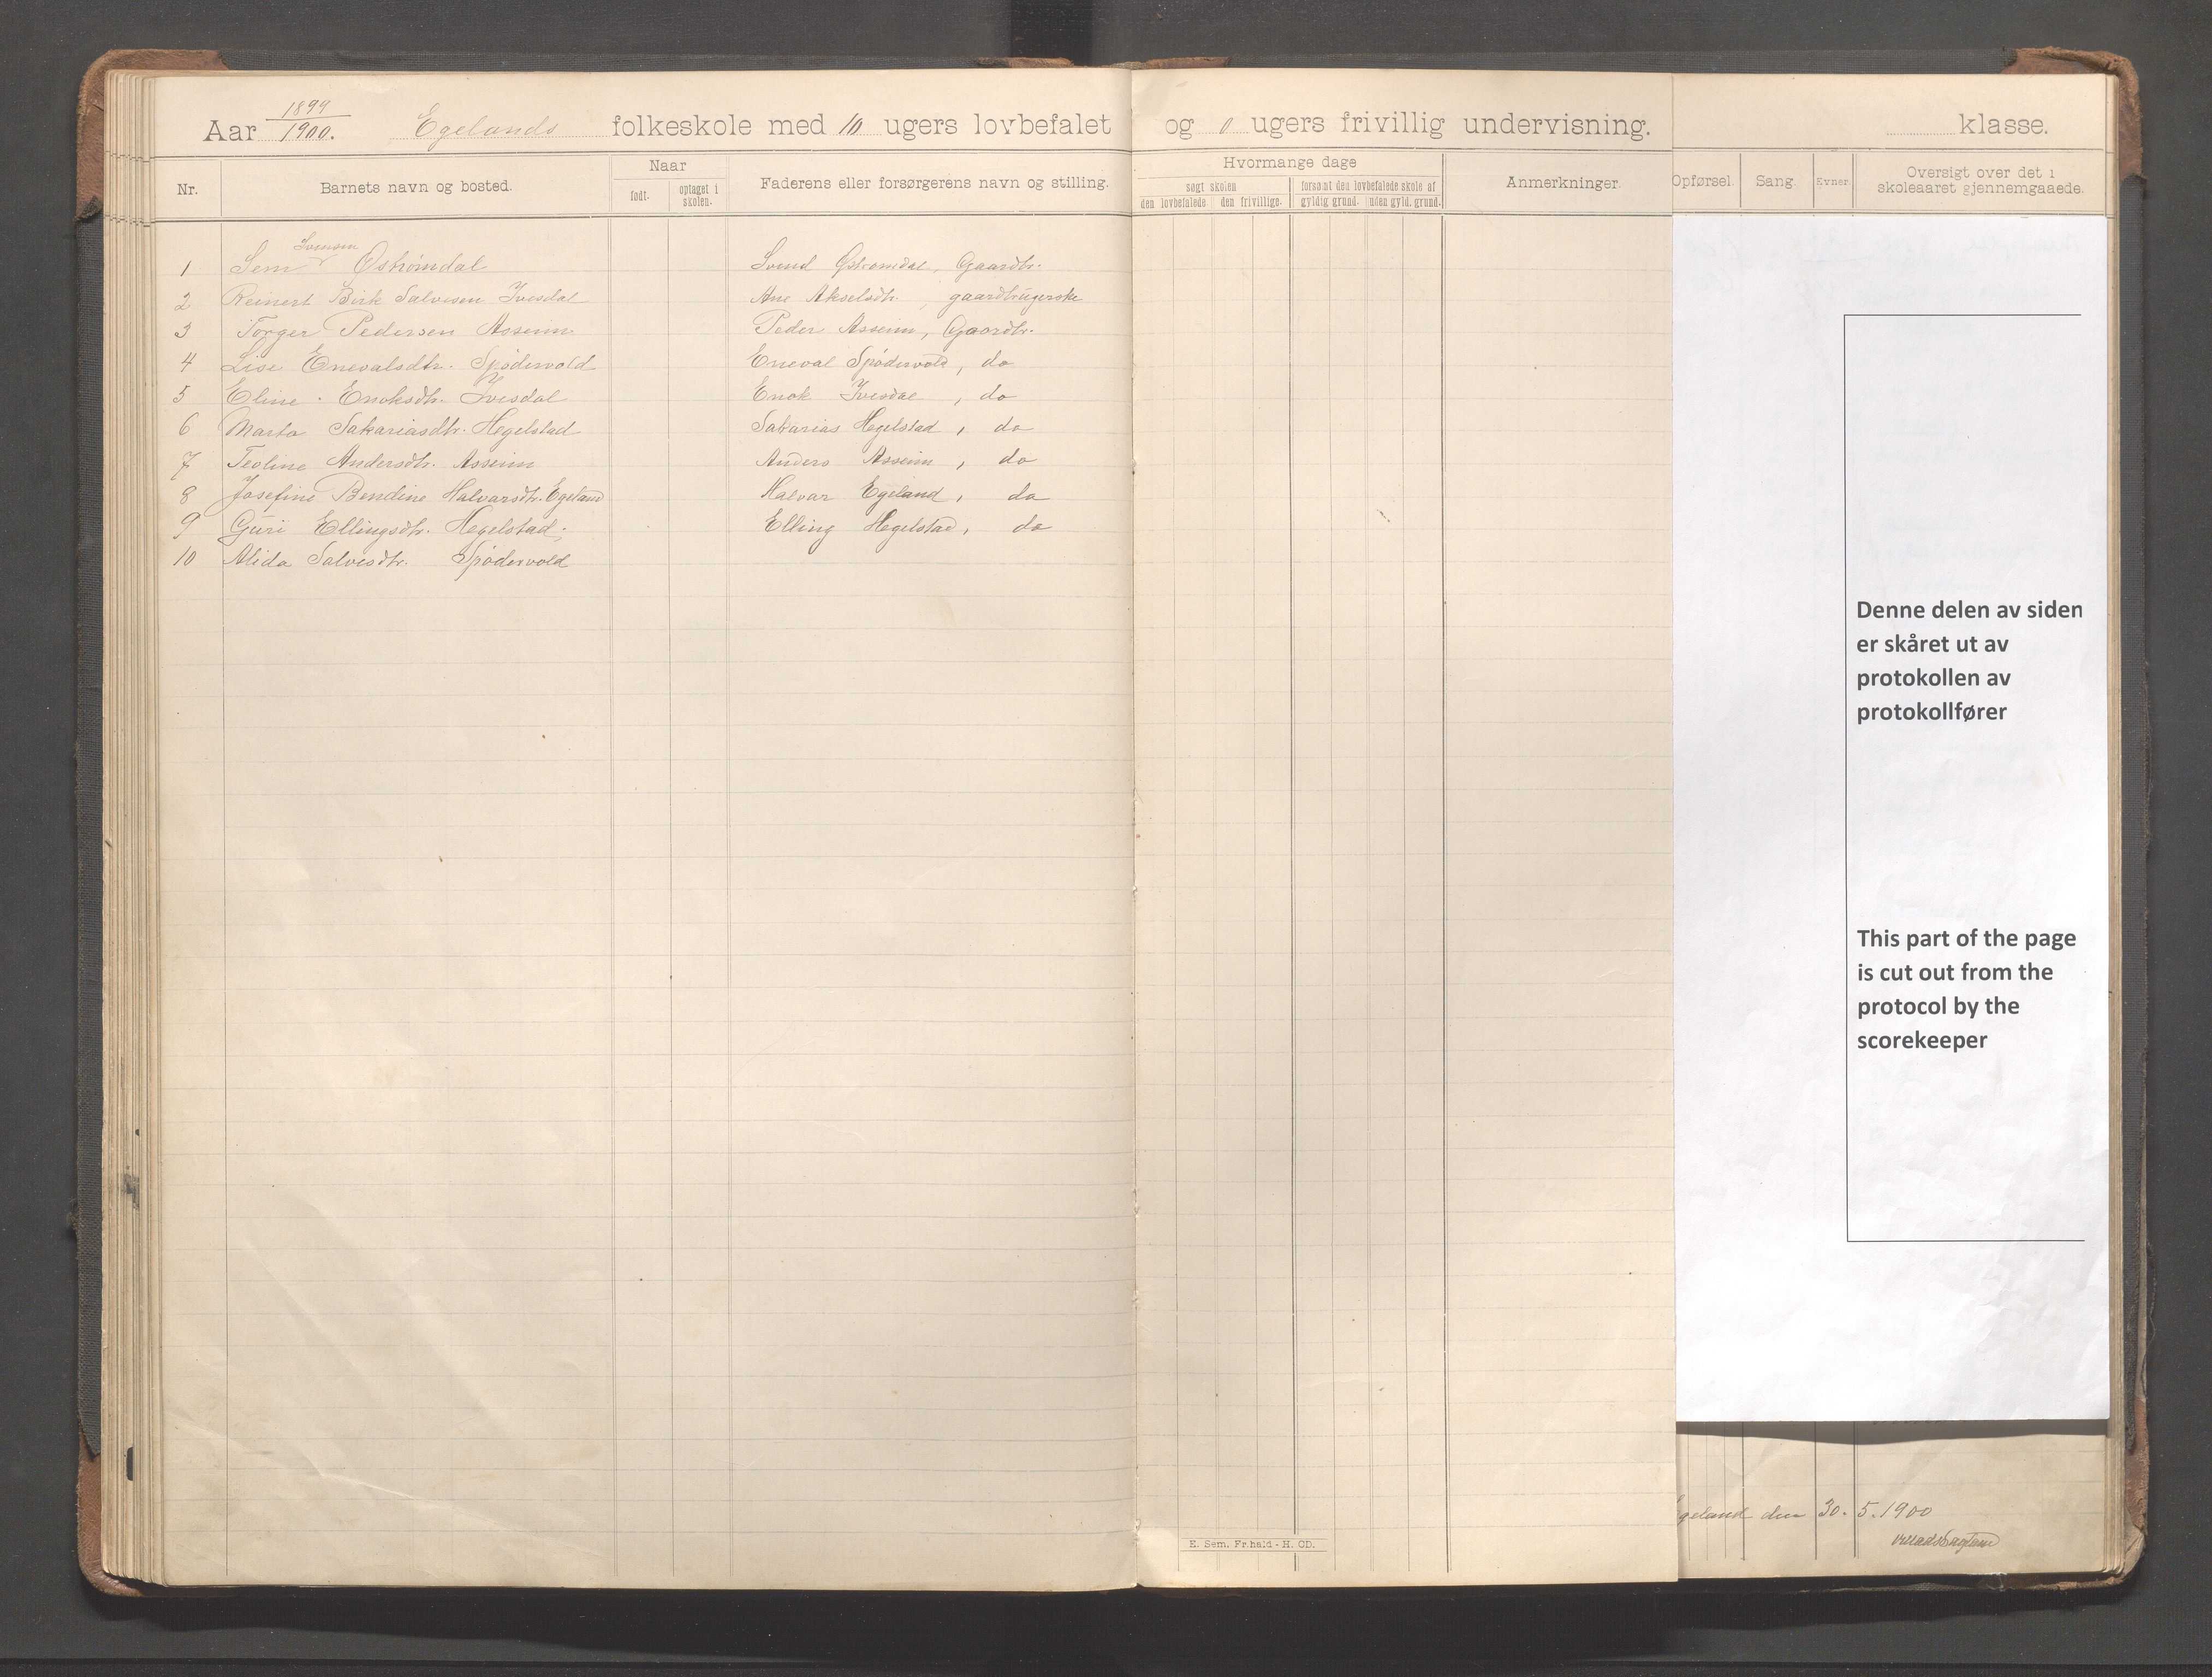 Aar 1899/1900. Egelands folkeskole med 10 ugers lovbefalet og 0 ugers frivillig undervisning. klasse.
Nr. Barnets navn og bosted. Naar født. optaget i skolen. Faderens eller forsørgerens navn og stilling. Hvormange dage søgt skolen den lovbefalede den frivillige. forsømt den lovbefalede skole af gyldig grund. uden gyld. grund. Anmerkninger. Opførsel. Sang. Evner. Oversigt over det i skoleaaret gjennemgaaede.
Svensen
1 Sem Østrømdal Svend Østromdal, Gaardbr.
2 Reinert Birk Salvesen Ivesdal Ane Akselsdtr., gaardbrugerske
3 Torger Pedersen Asseim Peder Asseim, Gaardbr.
4 Lise Enevalsdtr. Spødervold Eneval Spødervold, do
5 Eline Enoksdtr. Ivesdal Enok Ivesdal, do
6 Marta Sakariasdtr. Hegelstad Sakarias Hegelstad, do
7 Teoline Andersdtr. Asseim Anders Asseim, do
8 Josefine Bendine Halvarsdtr. Egeland Halvar Egeland, do
9 Guri Ellingsdtr. Hegelstad. Elling Hegelstad, do
10 Alida Salvesdtr. Spødervold
Denne delen av siden
er skåret ut av
protokollen av
protokollfører
This part of the page
is cut out from the
protocol by the
scorekeeper
geland den 30. 5. 1900
E. Sem, Fr.hald - H. CD.